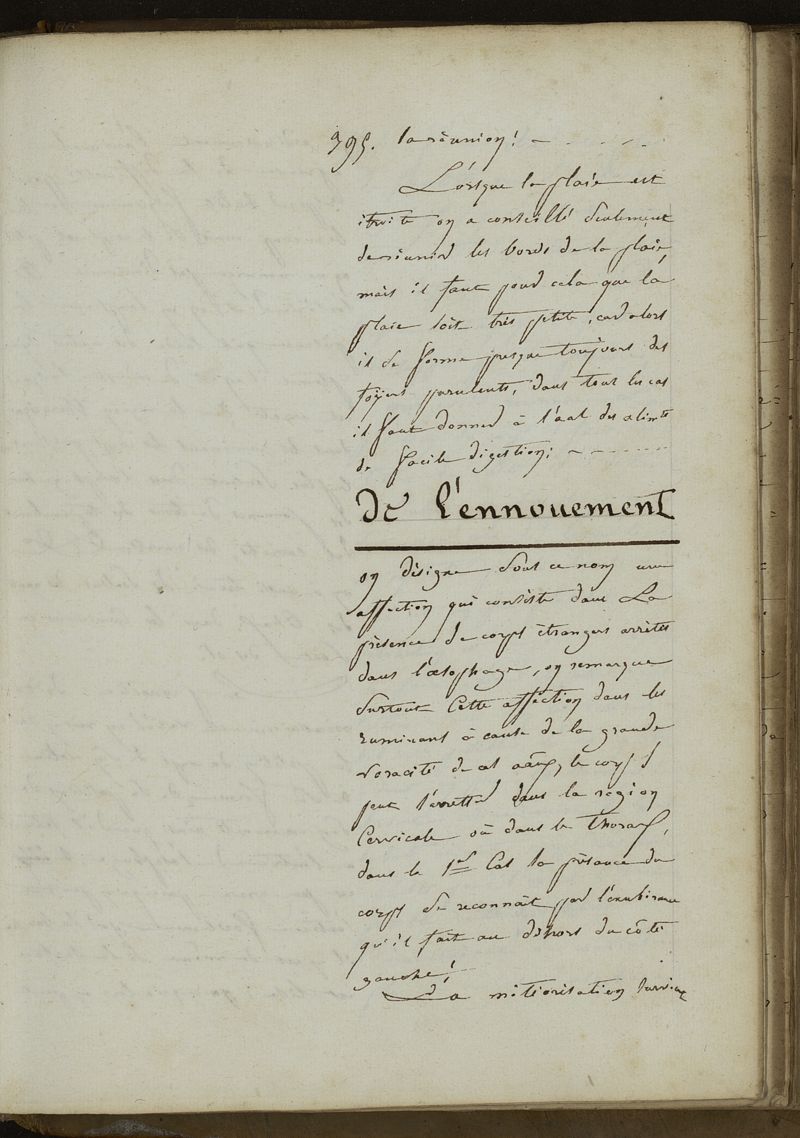 395. la réunion! — . . . . .
Lorsque la plaie est
étroite on a conseillé seulement
de réunir les bords de la plaie,
mais il faut pour cela que la
plaie soit très petite, car alors
il se forme presque toujours des
foyers purulents, dans tous les cas
il faut donner à l'aal des alimts
de facile digestion; — . . . . .
De l'ennouement
on désigne sous ce nom une
affection qui consiste dans La
présence de corps étrangers arrêtés
dans l'œsophage, on remarque
surtout cette affection dans les
ruminants à cause de la grande
voracité de cet aāx, le corps
peut s'arretter dans la région
Cervicale où dans le thorax,
dans le 1er Cas la présance du
corps se reconnait par l'éxubérance
qu'il fait au déhors du côté
gauche!
La météorisation